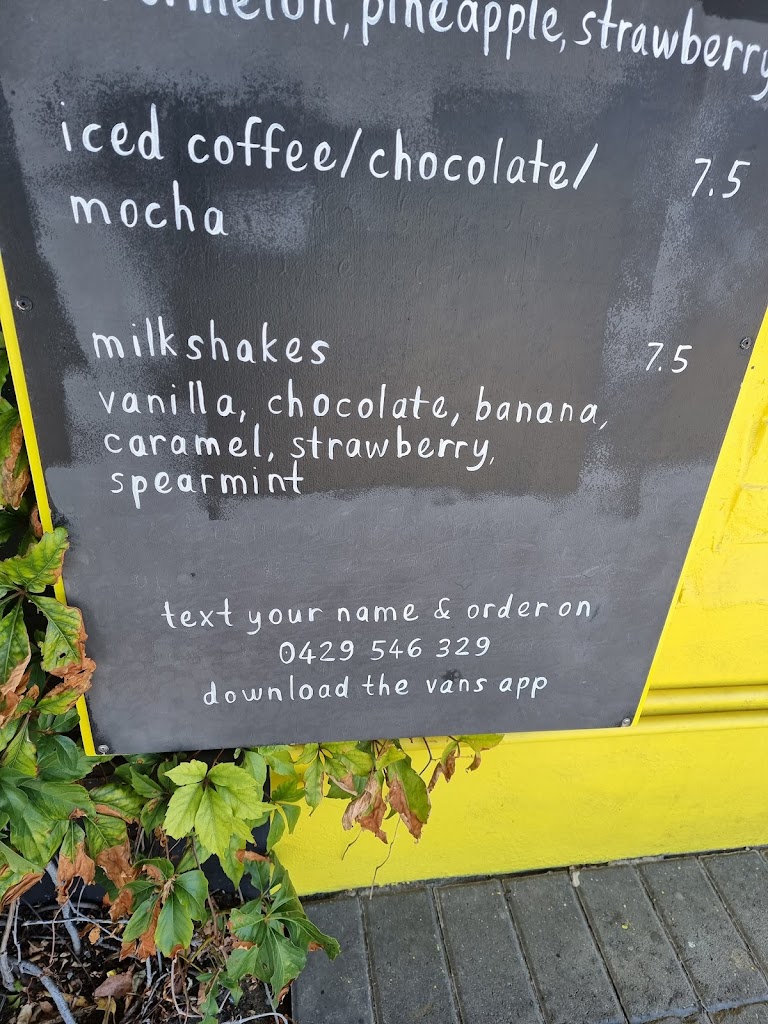 pineapple, strawberry,
iced coffee/chocolate/ 7.5
mocha
milkshakes 7.5
vanilla, chocolate, banana,
caramel, strawberry,
spearmint
text your name & order on
0429 546 329
download the vans app